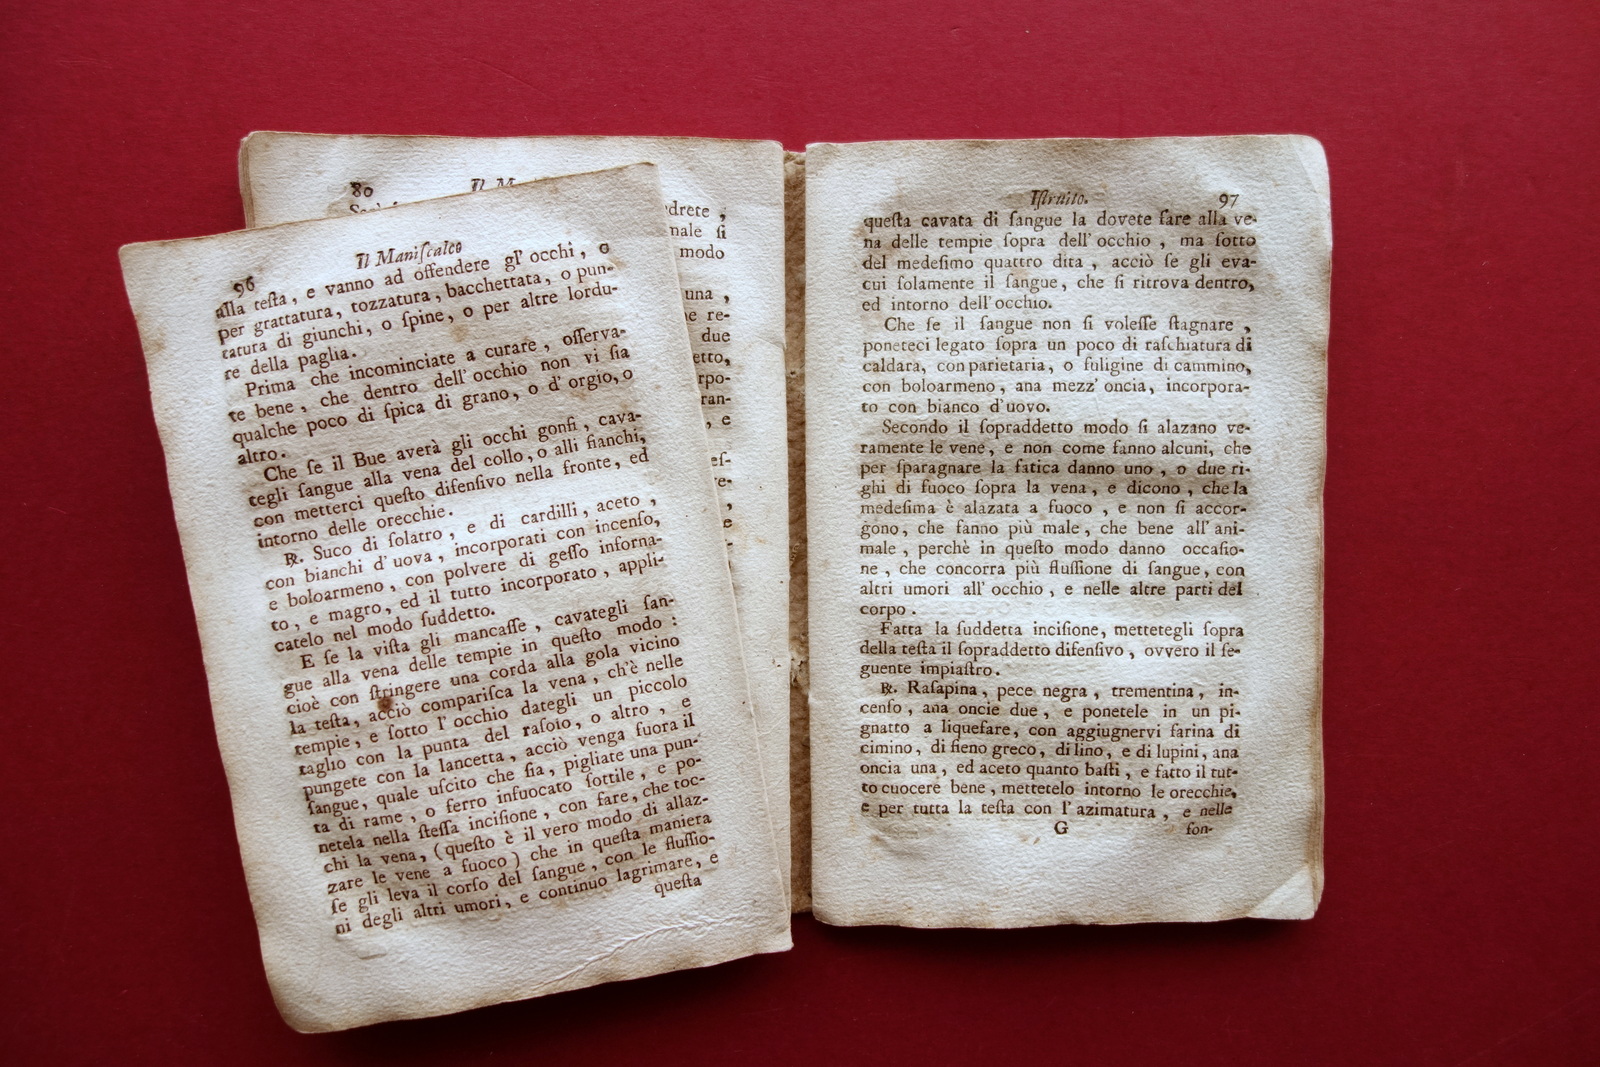 80
Il M
edrete ,
male ſi
modo
una ,
ne re-
due
etto,
rpo-
ran-
, e
eſ-
re-
,
e
96
Il Maniſcalco
alla teſta, e vanno ad offendere gl' occhi, o
per grattatura, tozzatura, bacchettata, o pun-
tatura di giunchi, o ſpine, o per altre lordu-
re della paglia.
Prima che incominciate a curare, oſſerva-
te bene, che dentro dell' occhio non vi ſia
qualche poco di ſpica di grano, o d' orgio, o
altro.
Che ſe il Bue averà gli occhi gonfi, cava-
tegli ſangue alla vena del collo, o alli fianchi,
con metterci queſto difenſivo nella fronte, ed
intorno delle orecchie.
℞. Suco di ſolatro, e di cardilli, aceto,
con bianchi d' uova, incorporati con incenſo,
e boloarmeno, con polvere di geſſo inforna-
to, e magro, ed il tutto incorporato, appli-
catelo nel modo ſuddetto.
E ſe la viſta gli mancaſſe, cavategli ſan-
gue alla vena delle tempie in queſto modo :
cioè con ſtringere una corda alla gola vicino
la teſta, acciò compariſca la vena, ch'è nelle
tempie, e ſotto l' occhio dategli un piccolo
taglio con la punta del raſoio, o altro, e
pungete con la lancetta, acciò venga fuora il
ſangue, quale uſcito che ſia, pigliate una pun-
ta di rame, o ferro infuocato ſottile, e po-
netela nella ſteſſa inciſione, con fare, che toc-
chi la vena, (queſto è il vero modo di allaz-
zare le vene a fuoco) che in queſta maniera
ſe gli leva il corſo del ſangue, con le fluſſio-
ni degli altri umori, e continuo lagrimare, e
queſta
Iſtruito.
97
queſta cavata di ſangue la dovete fare alla ve-
na delle tempie ſopra dell' occhio , ma ſotto
del medeſimo quattro dita , acciò ſe gli eva-
cui ſolamente il ſangue, che ſi ritrova dentro,
ed intorno dell' occhio.
Che ſe il ſangue non ſi voleſſe ſtagnare ,
poneteci legato ſopra un poco di raſchiatura di
caldara, con parietaria, o fuligine di cammino,
con boloarmeno, ana mezz' oncia, incorpora-
to con bianco d'uovo.
Secondo il ſopraddetto modo ſi alazano ve-
ramente le vene, e non come fanno alcuni, che
per ſparagnare la fatica danno uno , o due ri-
ghi di fuoco ſopra la vena, e dicono , che la
medeſima è alazata a fuoco , e non ſi accor-
gono, che fanno più male, che bene all' ani-
male , perchè in queſto modo danno occaſio-
ne , che concorra più fluſſione di ſangue, con
altri umori all' occhio , e nelle altre parti del
corpo .
Fatta la ſuddetta inciſione, mettetegli ſopra
della teſta il ſopraddetto difenſivo, ovvero il ſe-
guente impiaſtro.
℞. Raſapina , pece negra , trementina, in-
cenſo , ana oncie due , e ponetele in un pi-
gnatto a liquefare, con aggiugnervi farina di
cimino, di fieno greco, di lino, e di lupini, ana
oncia una , ed aceto quanto baſti , e fatto il tut-
to cuocere bene , mettetelo intorno le orecchie,
e per tutta la teſta con l' azimatura , e nelle
G
ſon-